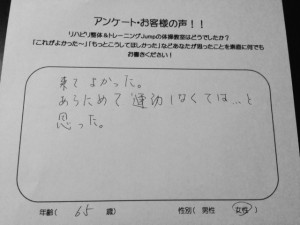 アンケート・お客様の声！！
リハビリ整体＆トレーニングJumpの体操教室はどうでしたか？
「これがよかった～」「もっとこうしてほしかった」などあなたが思ったことを素直に何でも
お書きください！
来てよかった。
あらためて運動しなくては…と
思った。
年齢（ 65 歳） 性別（ 男性 女性 ）